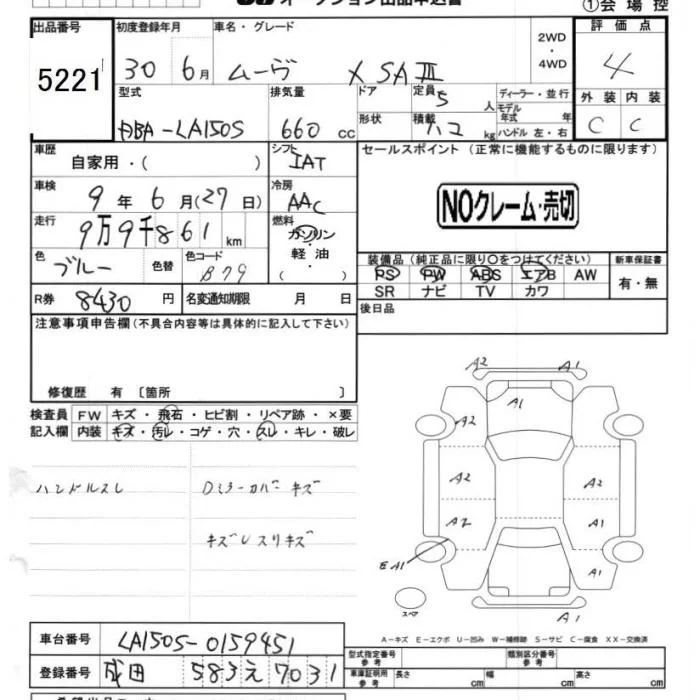 オークション出品申込書
①会場控
出品番号 初度登録年月 車名・グレード 評価点
5221 30 6月 ムーヴ X SAⅢ 2WD・4WD 4
型式 排気量 ドア 定員 5人 ディーラー・並行 外装 内装
DBA-LA150S 660cc 形状 積載 ハコ kg モデル年式 年 ハンドル 左・右 C C
車歴 シフト セールスポイント(正常に機能するものに限ります)
自家用・( ) IAT
車検 冷房 NOクレーム・売切
9年6月(27日) AAC
走行 燃料
9万9千861km ガソリン・軽油・( )
色 色替 色コード 装備品(純正品に限り〇をつけてください) 新車保証書
ブルー B79 PS PW ABS エアB AW 有・無
SR ナビ TV カワ
R券 8430円 名変通知期限 月 日 後日品
注意事項申告欄(不具合内容等は具体的に記入して下さい)
修復歴 有〔箇所 〕
検査員 FW キズ・飛石・ヒビ割・リペア跡・×要
記入欄 内装 キズ・汚レ・コゲ・穴・スレ・キレ・破レ
ハンドルスレ Dミラーカバーキズ
キズCスリキズ
A2 A1
A1
A2
A2 A2
A2 A1
EA1 A1
スペア A1
A-キズ E-エクボ U-凹み W-補修跡 S-サビ C-腐食 XX-交換済
車台番号 LA150S-0159451 型式指定番号 参考 類別区分番号 参考
登録番号 成田 583え7031 車庫証明用 参考 長さ cm 幅 cm 高さ cm